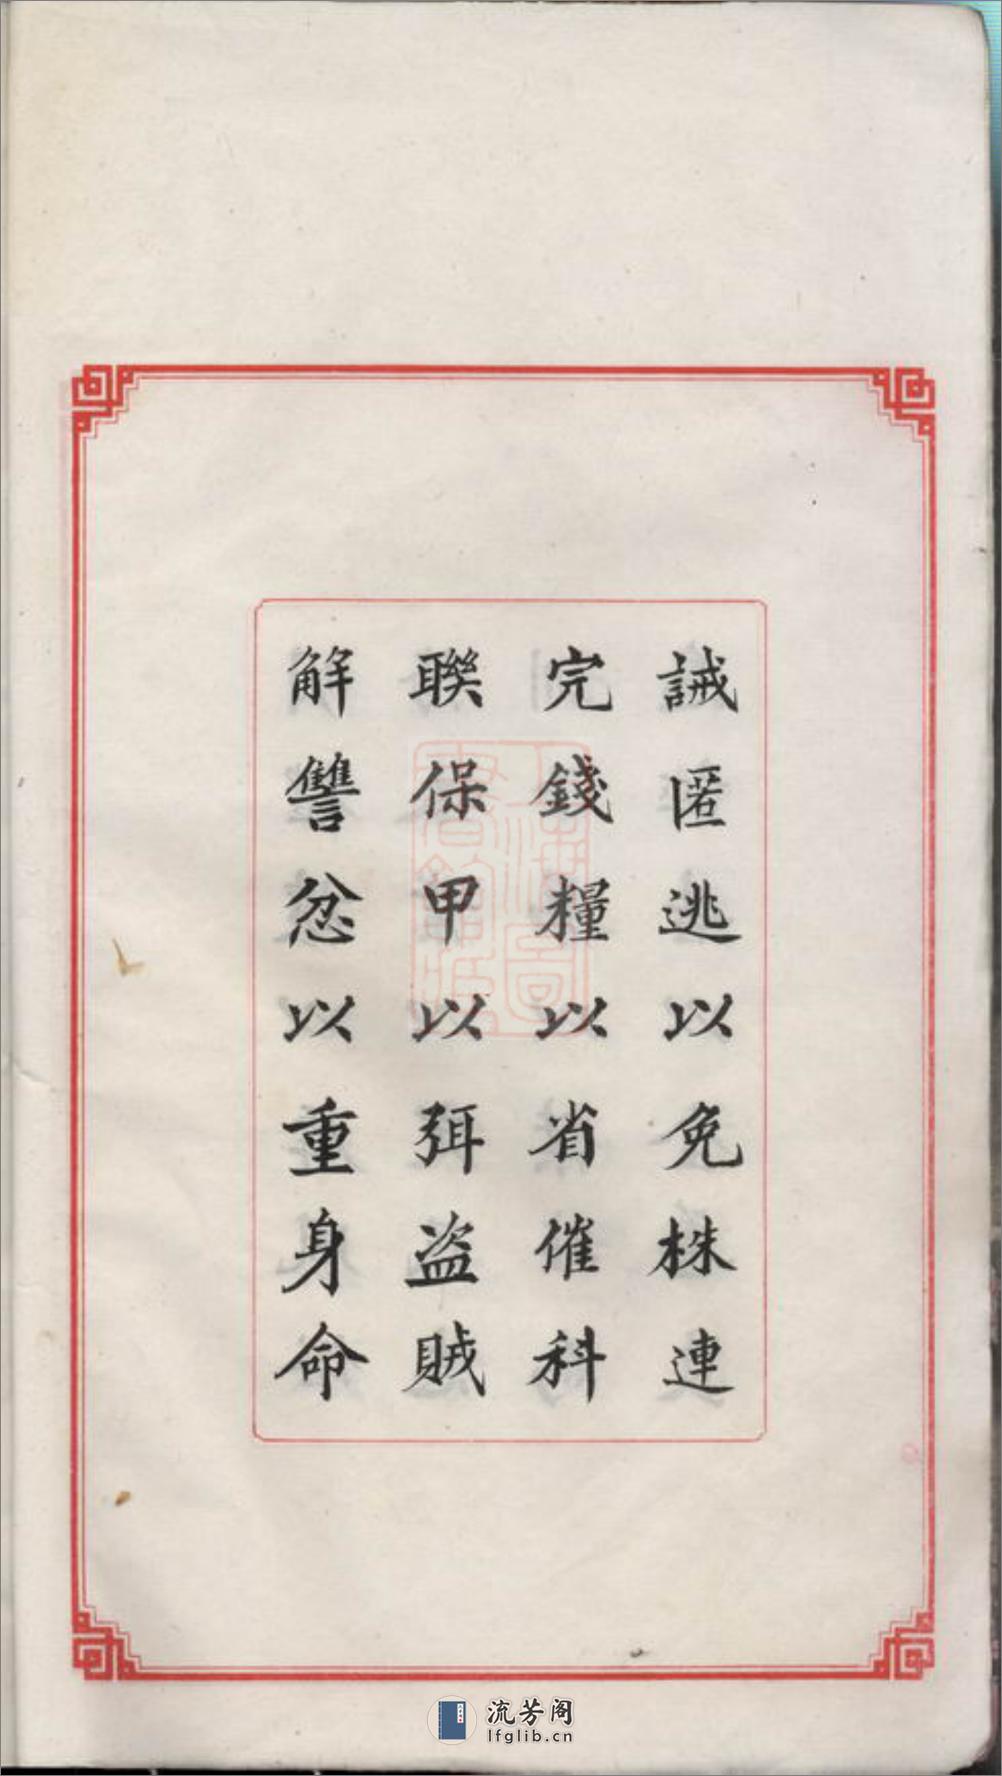 誡匿逃以免株連
完錢糧以省催科
聯保甲以弭盜賊
解讐忿以重身命
流芳阁
lfglib.cn